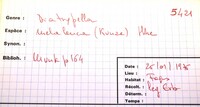 5421
Genre : Diatrypella
Espèce : melaleuca (Kunze) Nke
Synon. :
Biblioh. : Munk p 164
Date : 25/01/1976
Lieu :
Habitat : Fagus
Récolt. : leg.
Déterm. :
Temps :